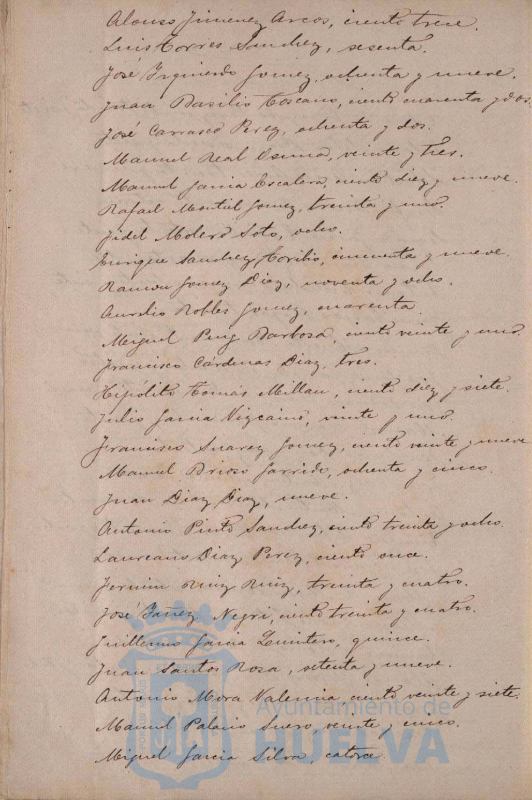 Alonso Jimenez Arcos, ciento trece.
Luis Torres Sanchez, sesenta.
José Izquierdo Gomez, ochenta y nueve.
Juan Basilio Toscano, ciento cuarenta y dos.
José Carrasco Perez, ochenta y dos.
Manuel Real Osuna, veinte y tres.
Manuel Garcia Escalera, ciento diez y nueve.
Rafael Montiel Gomez, treinta y uno.
Fidel Molero Soto, ocho.
Enrique Sanchez, cincuenta y nueve.
Ramon Gomez Diaz, noventa y ocho.
Aurelio Robles Gomez, cuarenta.
Miguel Puig Barbosa, ciento veinte y uno.
Francisco Cárdenas Diaz, tres.
Hipólito Tomás Millan, ciento diez y siete.
Julio Garcia Vizcaino, veinte y uno.
Francisco Suarez Gomez, ciento veinte y nueve
Manuel Brioso Garrido, ochenta y cinco.
Juan Diaz Diaz, nueve.
Antonio Pinto Sanchez, ciento treinta y ocho.
Laureano Diaz Perez, ciento once.
Fermin Ruiz Ruiz, treinta y cuatro.
José Yañez Negri, ciento treinta y cuatro.
Guillermo Garcia Quintero, quince.
Juan Santos Rosa, setenta y nueve.
Antonio Mora Valencia, ciento veinte y siete.
Manuel Palacio Suero, veinte y cinco.
Miguel Garcia Silva, catorce.
Ayuntamiento de
HUELVA